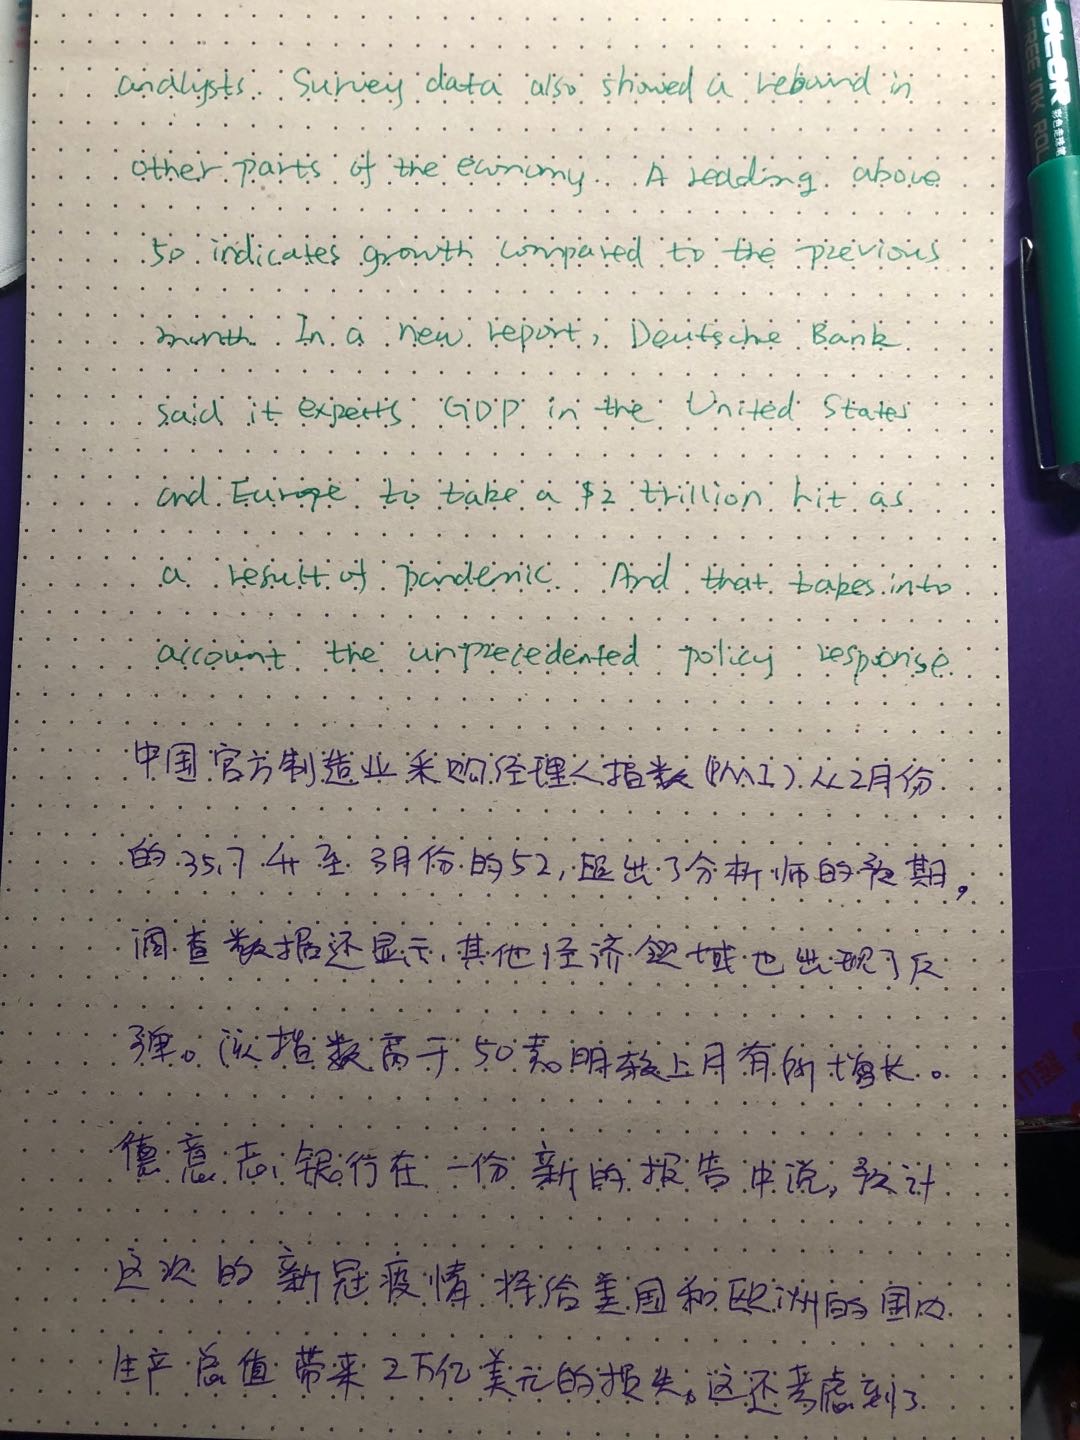 analysts. Survey data also showed a rebound in
other parts of the economy. A reading above
50 indicates growth compared to the previous
month. In a new report, Deutsche Bank
said it expects GDP in the United States
and Europe to take a $2 trillion hit as
a result of pandemic. And that takes into
account the unprecedented policy response
中国官方制造业采购经理人指数(PMI)从2月份
的35.7升至3月份的52,超出了分析师的预期。
调查数据还显示,其他经济领域也出现了反
弹。该指数高于50表明较上月有所增长。
德意志银行在一份新的报告中说,预计
这次的新冠疫情将给美国和欧洲的国内
生产总值带来2万亿美元的损失。这还考虑到了
OLOR
FREE INK ROL